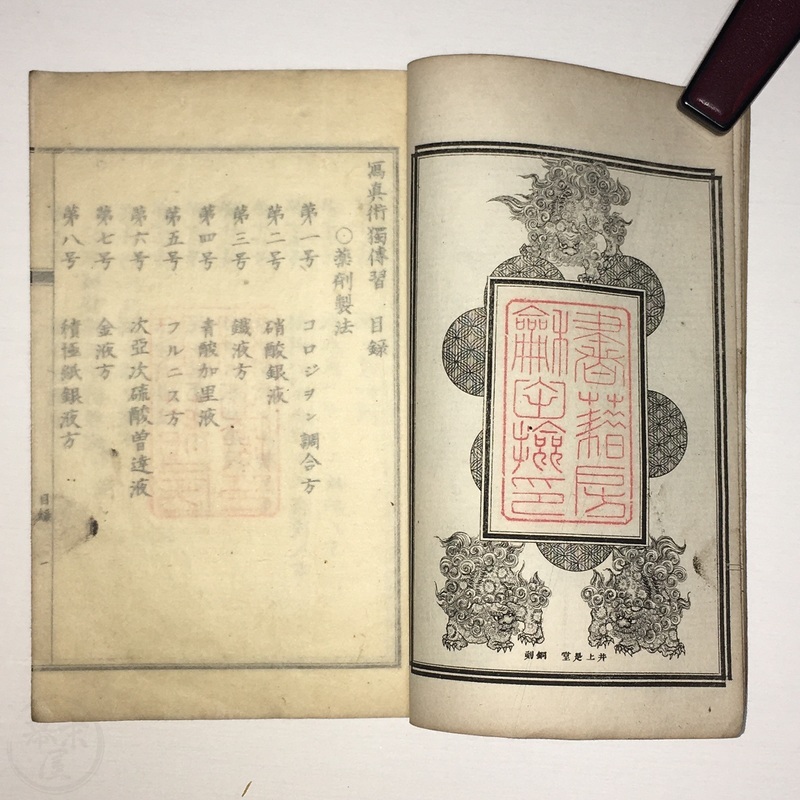 書藉房
撿印
井上是堂 銅刻
寫真術獨傳習 目録
○薬剤製法
第一号 コロジヲン調合方
第二号 硝酸銀液
第三号 鐵液方
第四号 青酸加里液
第五号 フルニス方
第六号 次亞次硫酸曽達液
第七号 金液方
第八号 積極紙銀液方
目録 一